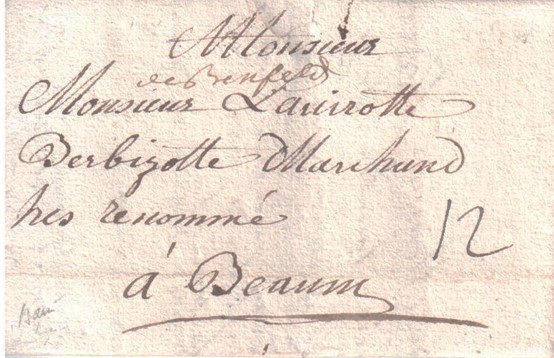 Monsieur
de Benfeld
Monsieur Lavirrotte
Berbizotte Marchand
tres renommé
12
à Beaum